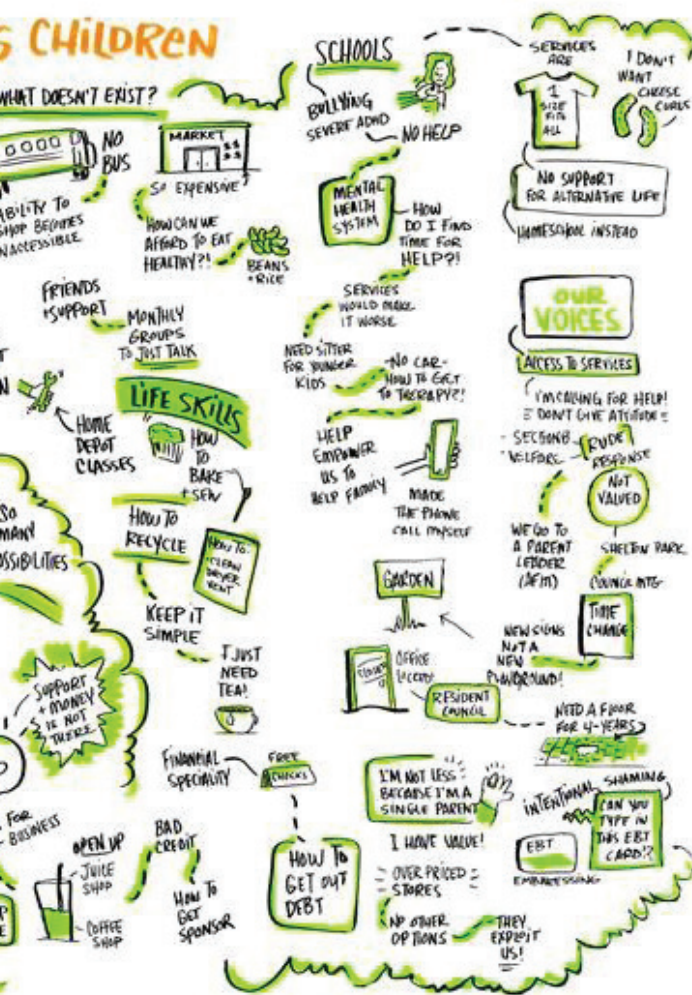 CHILDREN
WHAT DOESN'T EXIST?
NO
BUS
MARKET
$$
$$
SO EXPENSIVE
ABILITY TO
SHOP BECOMES
HOW CAN WE
AFFORD TO EAT
HEALTHY?!
BEANS
+ RICE
FRIENDS
+ SUPPORT
MONTHLY
GROUPS
TO JUST TALK
LIFE SKILLS
HOME
DEPOT
CLASSES
HOW
TO
BAKE
+ SEW
SO
MANY
HOW TO
RECYCLE
HOW TO:
CLEAN
DRYER
VENT
KEEP IT
SIMPLE
I JUST
NEED
TEA!
SUPPORT
+ MONEY
IS NOT
THERE
FOR
BUSINESS
OPEN UP
- JUICE
SHOP
- COFFEE
SHOP
BAD
CREDIT
HOW TO
GET
SPONSOR
FINANCIAL
SPECIALITY
FREE
CHECKS
HOW TO
GET OUT
DEBT
SCHOOLS
BULLYING
SEVERE ADHD
NO HELP
MENTAL
HEALTH
SYSTEM
HOW
DO I FIND
TIME FOR
HELP?!
SERVICES
WOULD MAKE
IT WORSE
NEED SITTER
FOR YOUNGER
KIDS
NO CAR-
HOW TO GET
TO THERAPY?!
HELP
EMPOWER
US TO
HELP FAMILY
MADE
THE PHONE
CALL MYSELF
GARDEN
CLOSED
OFFICE
LOCKED!
RESIDENT
COUNCIL
I'M NOT LESS
BECAUSE I'M A
SINGLE PARENT
I HAVE VALUE!
OVER PRICED
STORES
NO OTHER
OPTIONS
THEY
EXPLOIT
US!
SERVICES
ARE
1
SIZE
FITS
ALL
I DON'T
WANT
CHEESE
CURLS
NO SUPPORT
FOR ALTERNATIVE LIFE
HOMESCHOOL INSTEAD
OUR
VOICES
ACCESS TO SERVICES
I'M CALLING FOR HELP!
DON'T GIVE ATTITUDE
- SECTION 8
- WELFARE
RUDE
RESPONSE
NOT
VALUED
WE GO TO
A PARENT
LEADER
SHELTON PARK
COUNCIL MTG
TIME
CHANGE
NEW SIGNS
NOT A
NEW
PLAYGROUND!
NEED A FLOOR
FOR 4-YEARS
INTENTIONAL SHAMING
EBT
EMBARRESSING
CAN YOU
TYPE IN
THIS EBT
CARD!?